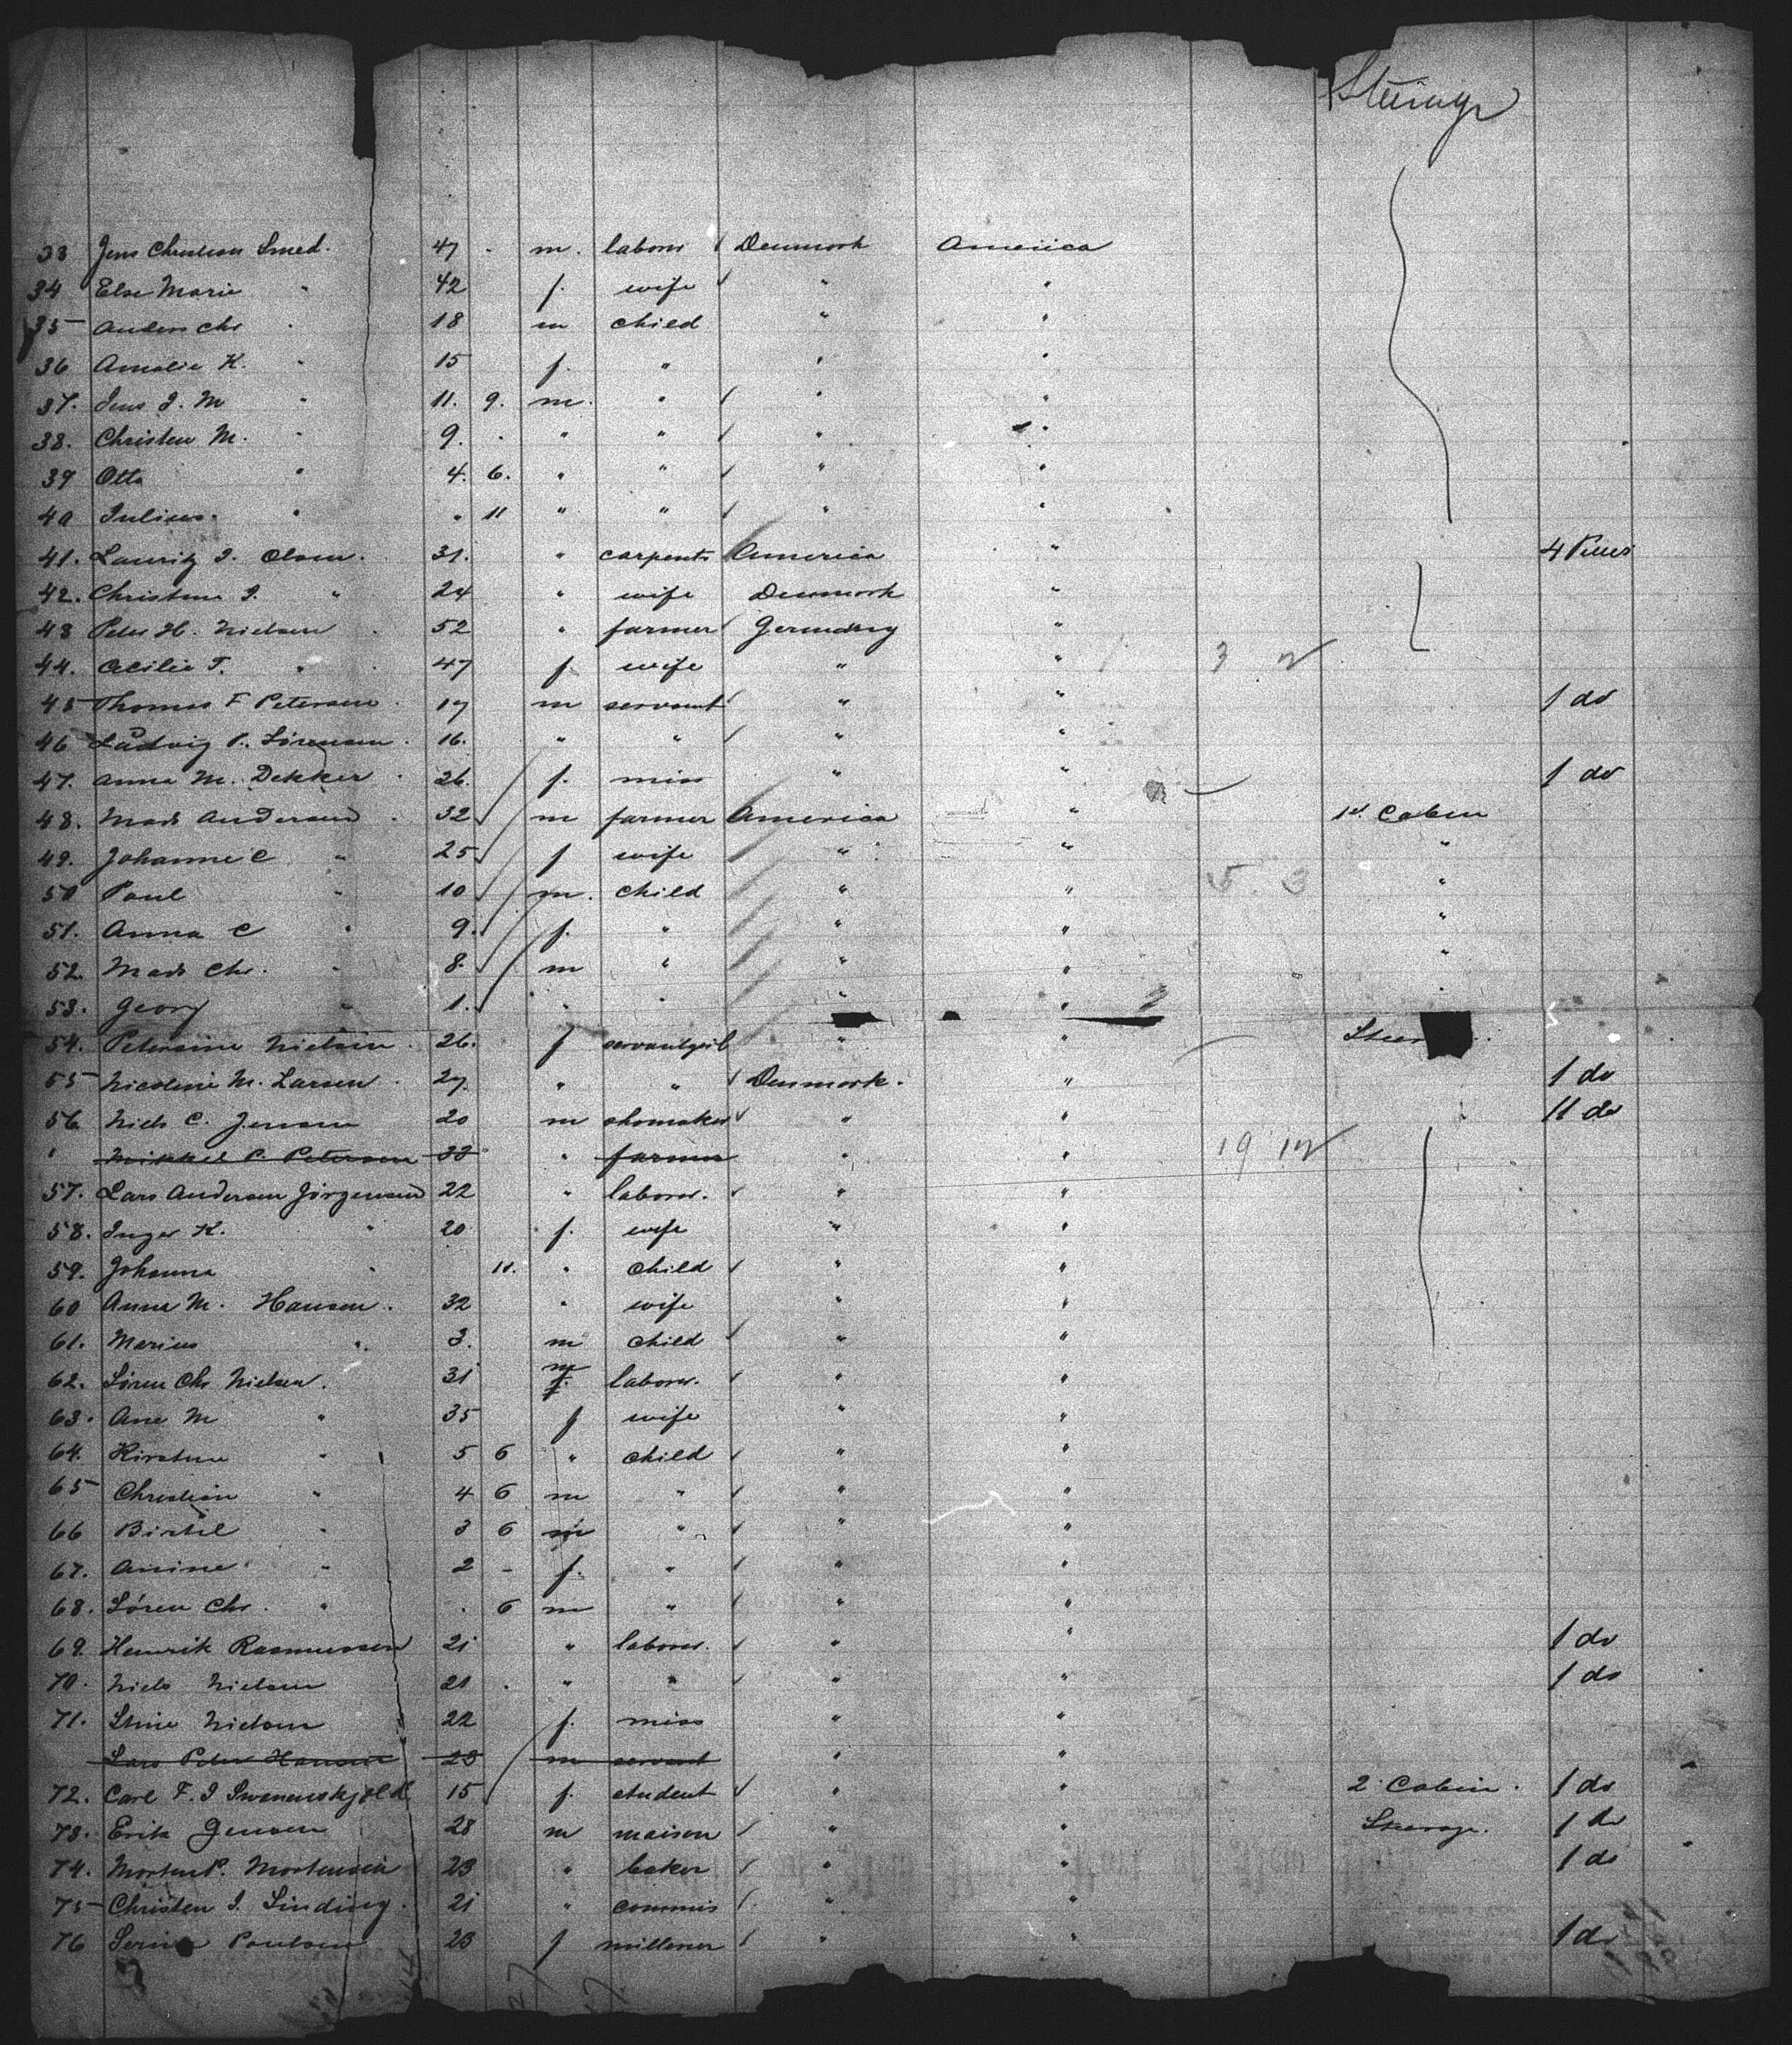 Steerage
33 Jens Christian Smed. 47 . m. labour Denmark America
34 Else Marie " 42 f. wife " "
35 Anders Chr " 18 m child " "
36 Amalie K. " 15 f. " " "
37. Jens J. M " 11. 9. m. " " "
38. Christen M. " 9. . " " " "
39 Otto " 4. 6. " " " "
40 Julius. " " 11 " " " "
41. Lauritz J. Olsen. 31. " carpents America " 4 Pieces
42. Christine J. " 24 " wife Denmark "
43 Peter H. Nielsen . 52 " farmer Germany "
44. Cecilie T. " 47 f. wife " " 3 2
45 Thomas F Petersen . 17 m servant " " 1 do
46 Ludvig P. Sörensen . 16. " " " "
47. Anna M. Dekker . 26. f. miss " " 1 do
48. Mads Andersen . 32 m farmer America " 1st Cabin
49. Johanne C " 25 f wife " " "
50 Paul " 10 m. child " " 5 3 "
51. Anna C " 9. f. " " " "
52. Mads Chr. " 8. m " " " "
53. Georg " 1. " " " " "
54. Petersine Nielsen . 26. f servantgirl " "
55 Nicoline M. Larsen . 27. " " Denmark. " 1 do
56 Niels C. Jensen 20 m shomaker " " 11 do
" Mikkel P. Petersen 33 " farmer " " 19 12
57. Lars Andersen Jörgensen 22 " labour. " "
58. Inger K. " 20 f. wife " "
59. Johanna " 11. " child " "
60 Anna M. Hansen. 32 " wife " "
61. Marius " 3. m child " "
62. Sören Chr Nielsen. 31 m f. labour. " "
63. Ane M " 35 f wife " "
64. Kirstine " 5 6 " child " "
65 Christian " 4 6 m " " "
66 Birtel " 3 6 m " " "
67. Anine " 2 - f. " " "
68. Sören Chr. " . 6 m " " "
69. Henrik Rasmussen 21 " labour. " " 1 do
70. Niels Nielsen 21 . " " " " 1 do
71. Stine Nielsen 22 f. miss " "
Lars Peter Hansen 23 m servant " "
72. Carl F. J Swanenskjold 15 f. student " " 2 Cabin. 1 do
73. Erik Jensen 28 m maison " " Steerage. 1 do
74. Morten P. Mortensen 23 " baker " " " 1 do
75 Christen J. Linding. 21 " commis " "
76 Poulsen 23 f millener " " 1 do